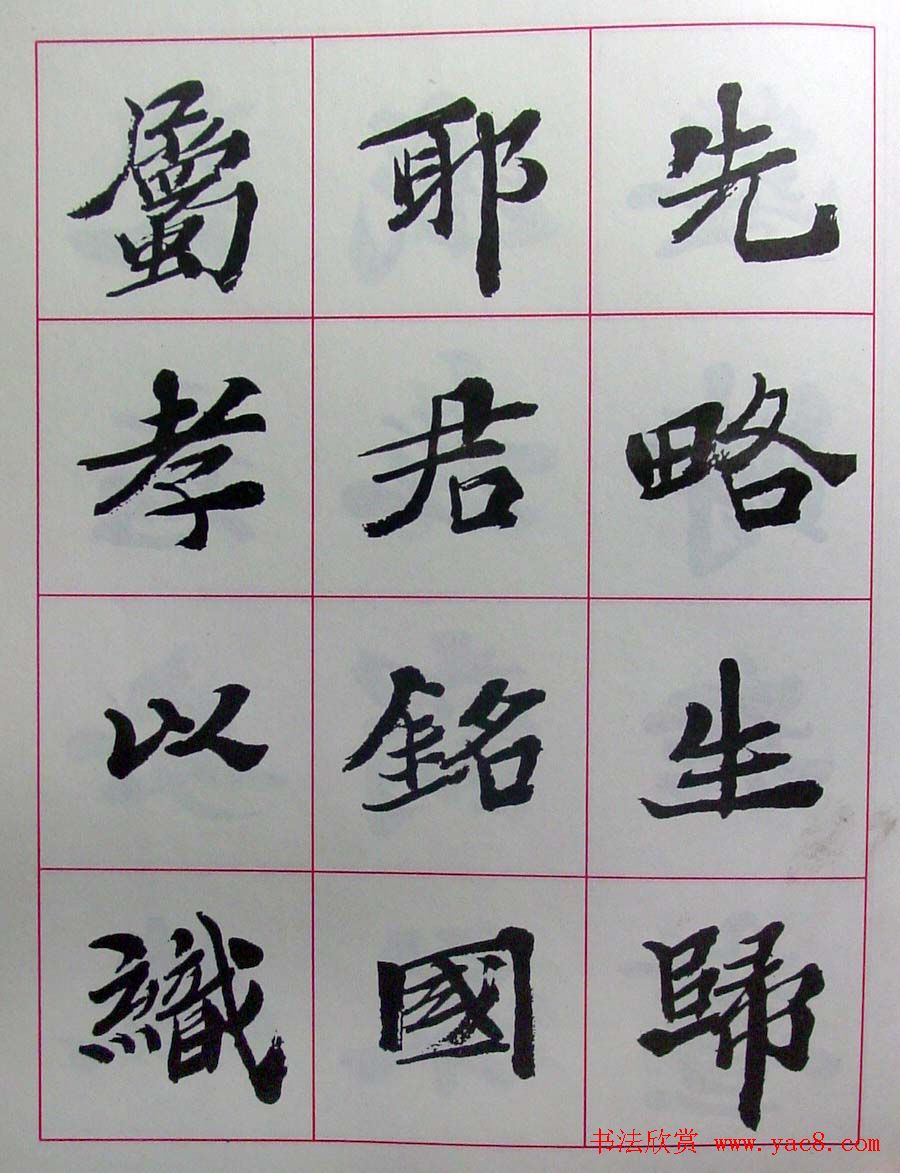 先略生歸
耶君銘國
屬孝以織
书法欣赏 www.yac8.com